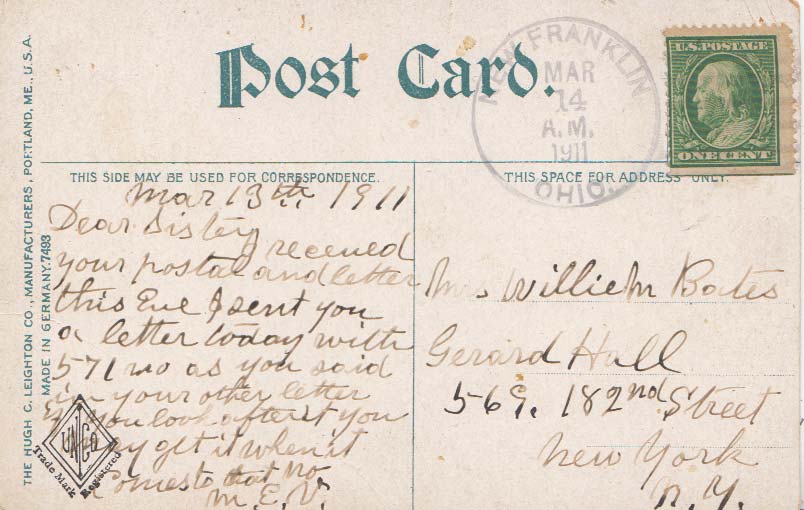 Post Card.
NEW FRANKLIN
MAR
14
A.M.
1911
OHIO.
U.S. POSTAGE
ONE CENT
THIS SIDE MAY BE USED FOR CORRESPONDENCE.
THIS SPACE FOR ADDRESS ONLY.
THE HUGH C. LEIGHTON CO., MANUFACTURERS, PORTLAND, ME., U.S.A.
MADE IN GERMANY. 7493
Mar 13th, 1911
Dear Sister
received
your postal and letter
this Eve I sent you
a letter today with
571 no as you said
in your other letter
if you look after it you
may get it when it
Comes to that No
M. E. V.
Mrs Willie M Bates
Gerard Hall
569, 182nd Street
New York
N. Y.
Trade Mark
Registered